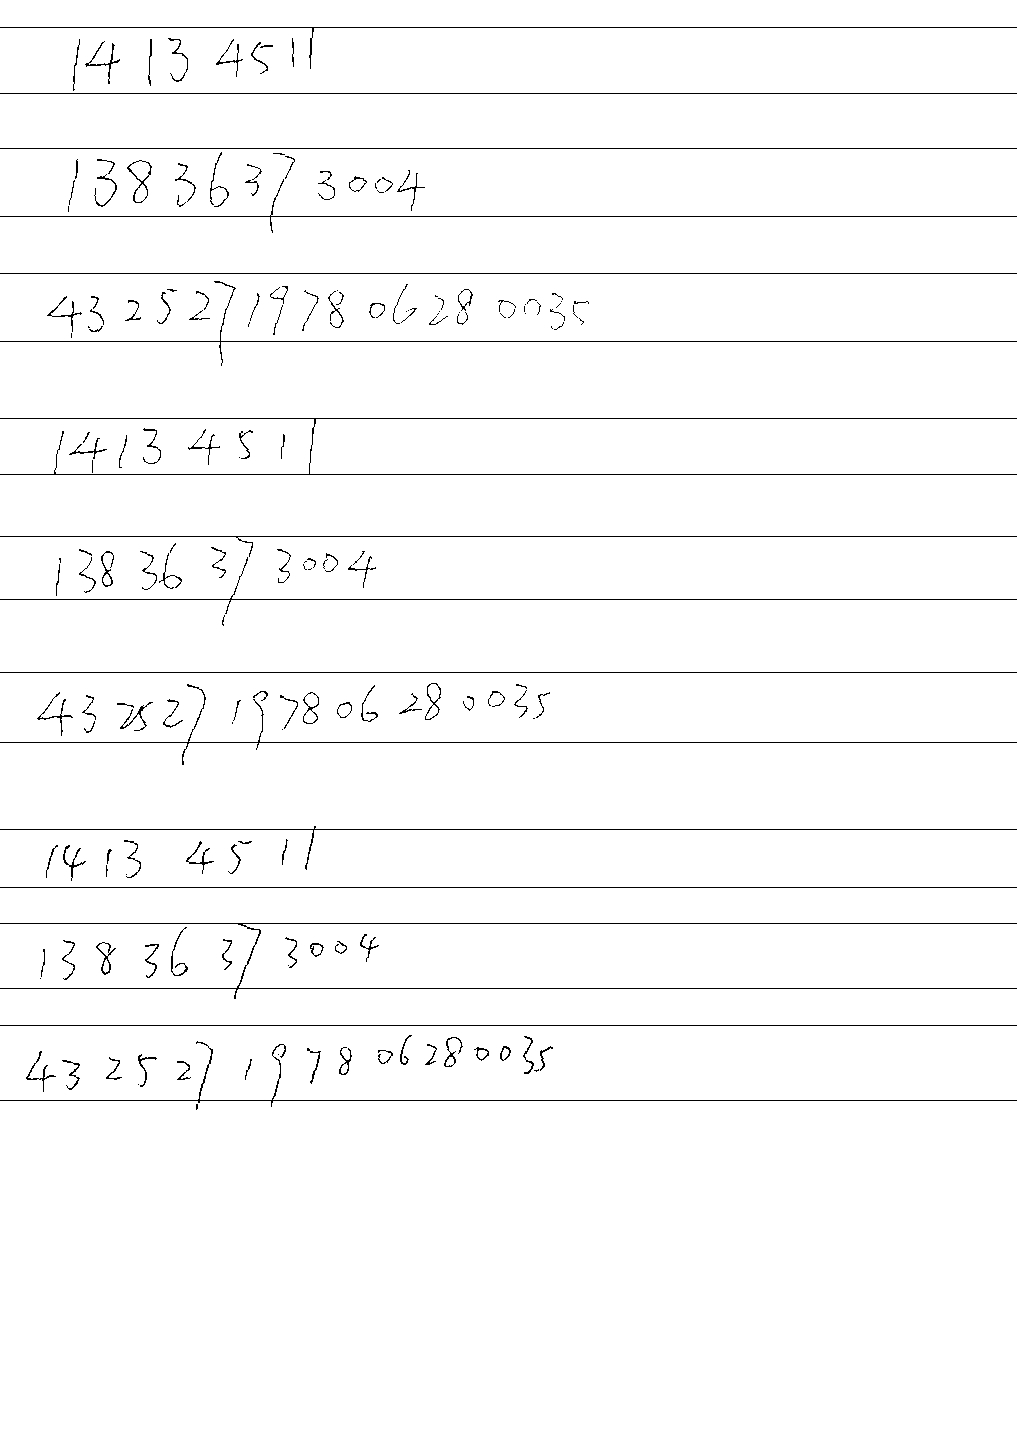 14 13 4511
138 36 37 3004
43 25 27 1978 06 28 0035
14 13 4 5 11
138 36 37 3004
43 25 27 1978 06 28 0035
14 13 45 11
138 36 37 3004
43 25 27 1978 06280035